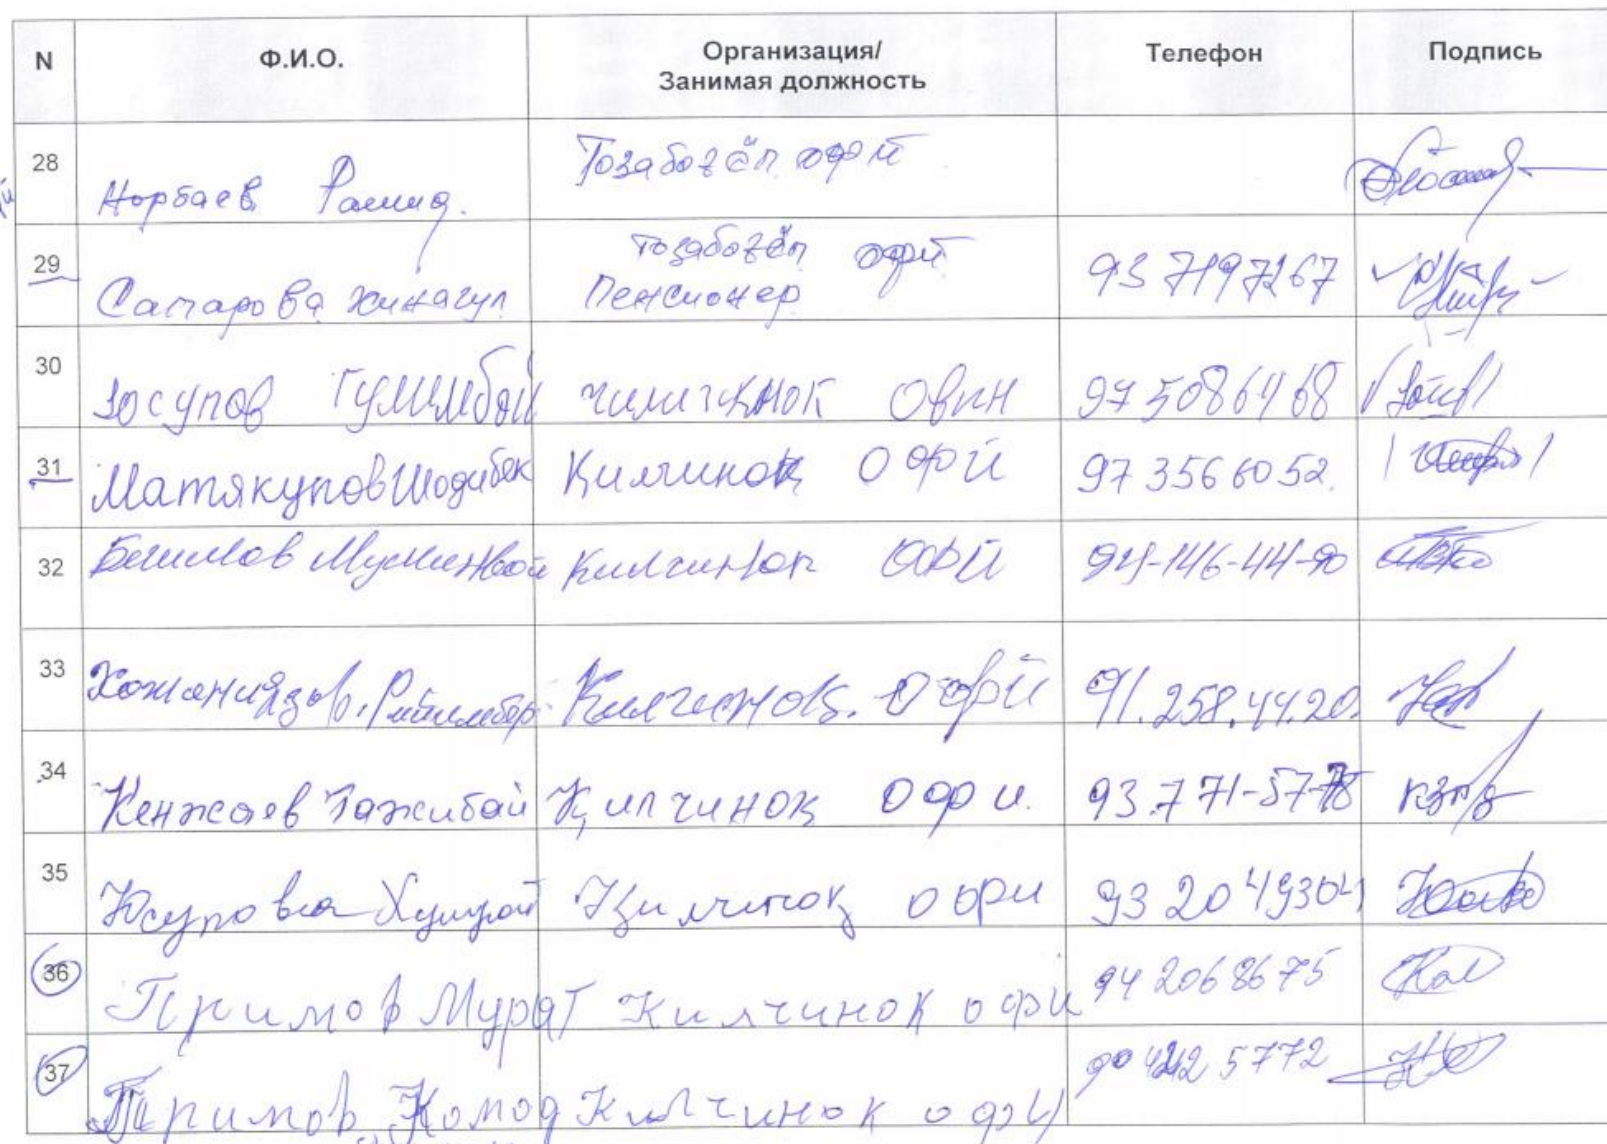 N Ф.И.О. Организация/ Занимая должность Телефон Подпись
28 Норбаев Рашид. Тозабоғёп офй
29 Сатарова Жинагул тозабоғёп офй Пенсионер 93 7197267
30 Юсупов 97 5086468
31 Матякупов Шодибек Қилчинок ОФЙ 97 356 60 52.
32 Килчинок ОФЙ 94-146-44-90
33 Хожаниязов. Килчинок. офй 91.258.44.20.
34 Кенжаев Тажибай Қилчинок офи. 93.771-57-78
35 Юсупова Қилчинок офи 93 204 9304
36 Мурат Килчинок офи 94 206 86 75
37 Комод Килчинок офи 5772